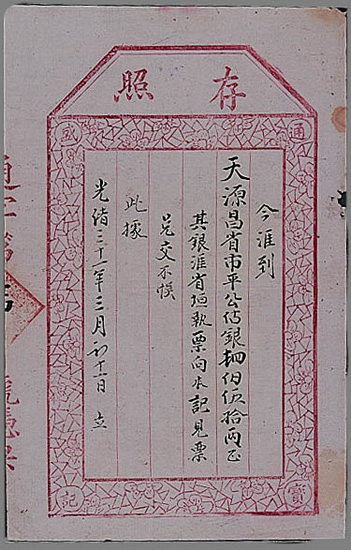 存照
通
盛
寶
記
今滙到
天源昌省市平公估銀佰伍拾兩正
其銀滙省垣執票向本記見票
兌交不悞
此據
光緒三十一年三月初十一日 立